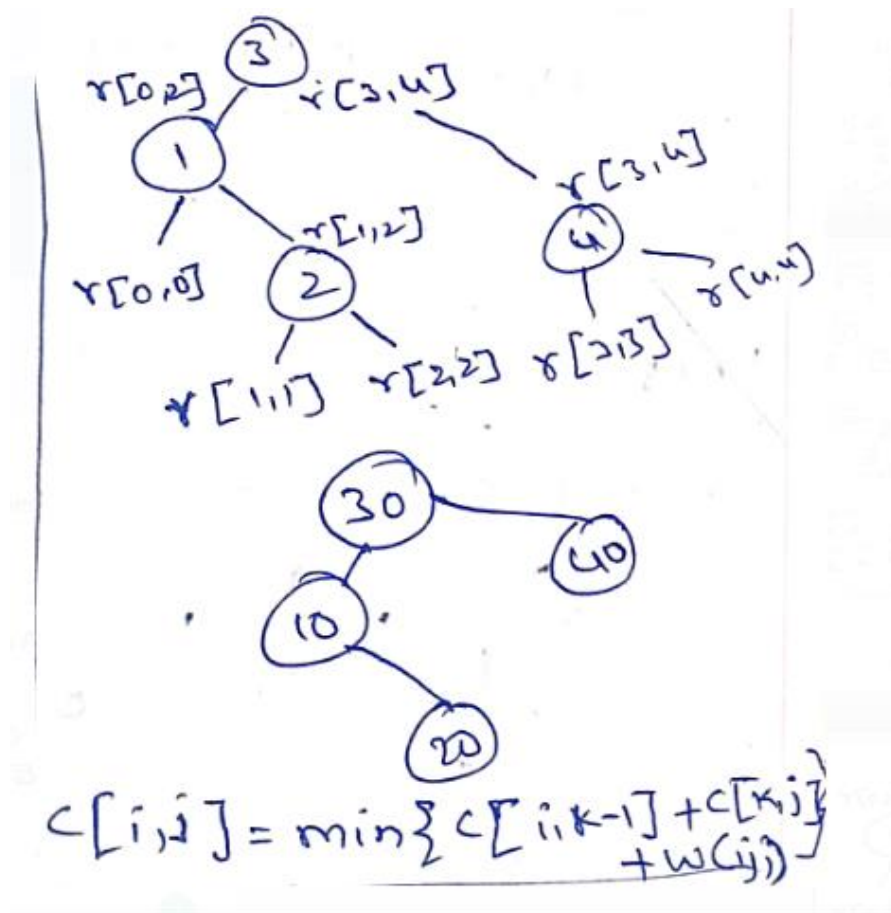 3
r[0,2] r[3,4]
1
r[3,4]
r[1,2]
4
r[0,0] 2 r[4,4]
r[1,1] r[2,2] r[3,3]
30
40
10
20
C[i,j] = min{C[i,k-1] + C[k,j]}
+ w(i,j)